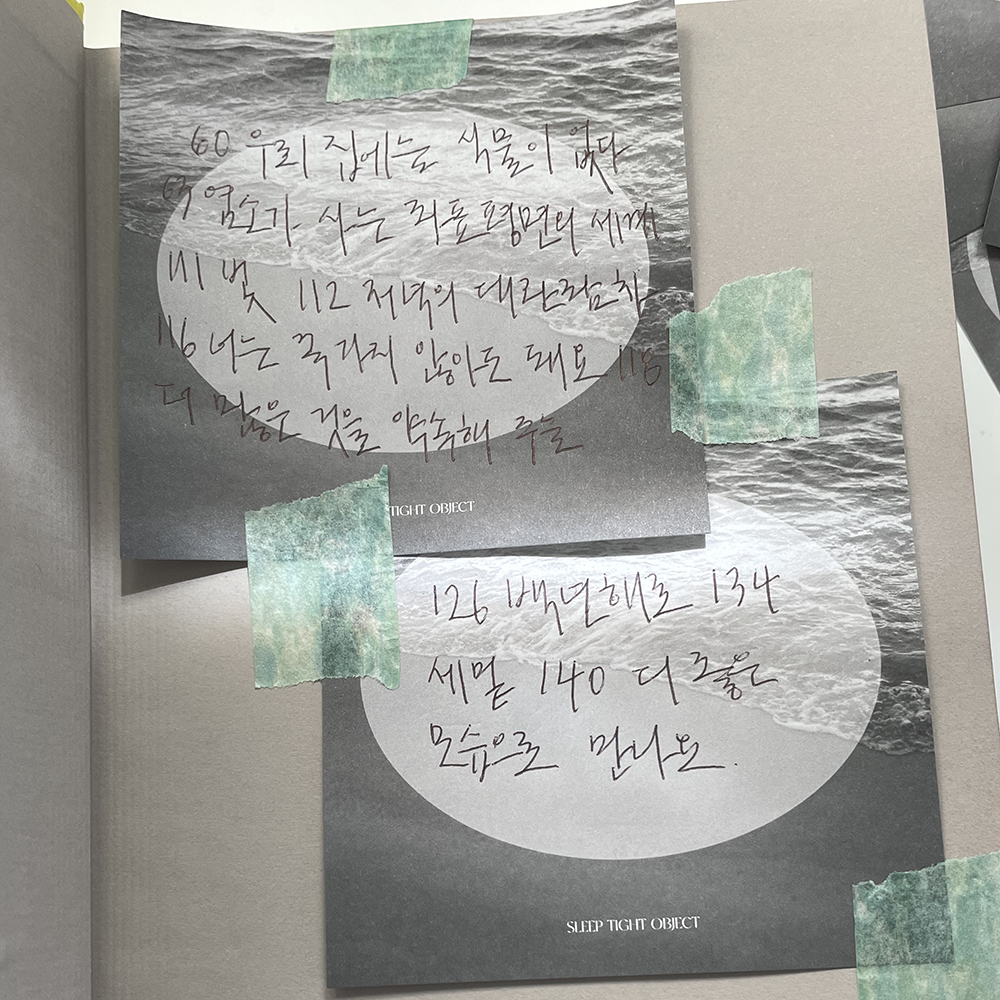 60 우리 집에는 식물이 없다
염소가 사는 좌표평면의 세계
111 빛 112 저녁의 대관람차
116 너는 꼭 가지 않아도 돼요 118
더 많은 것을 약속해 주늘
TIGHT OBJECT
126 백년해로 134
세밑 140 더 좋은
모습으로 만나요.
SLEEP TIGHT OBJECT